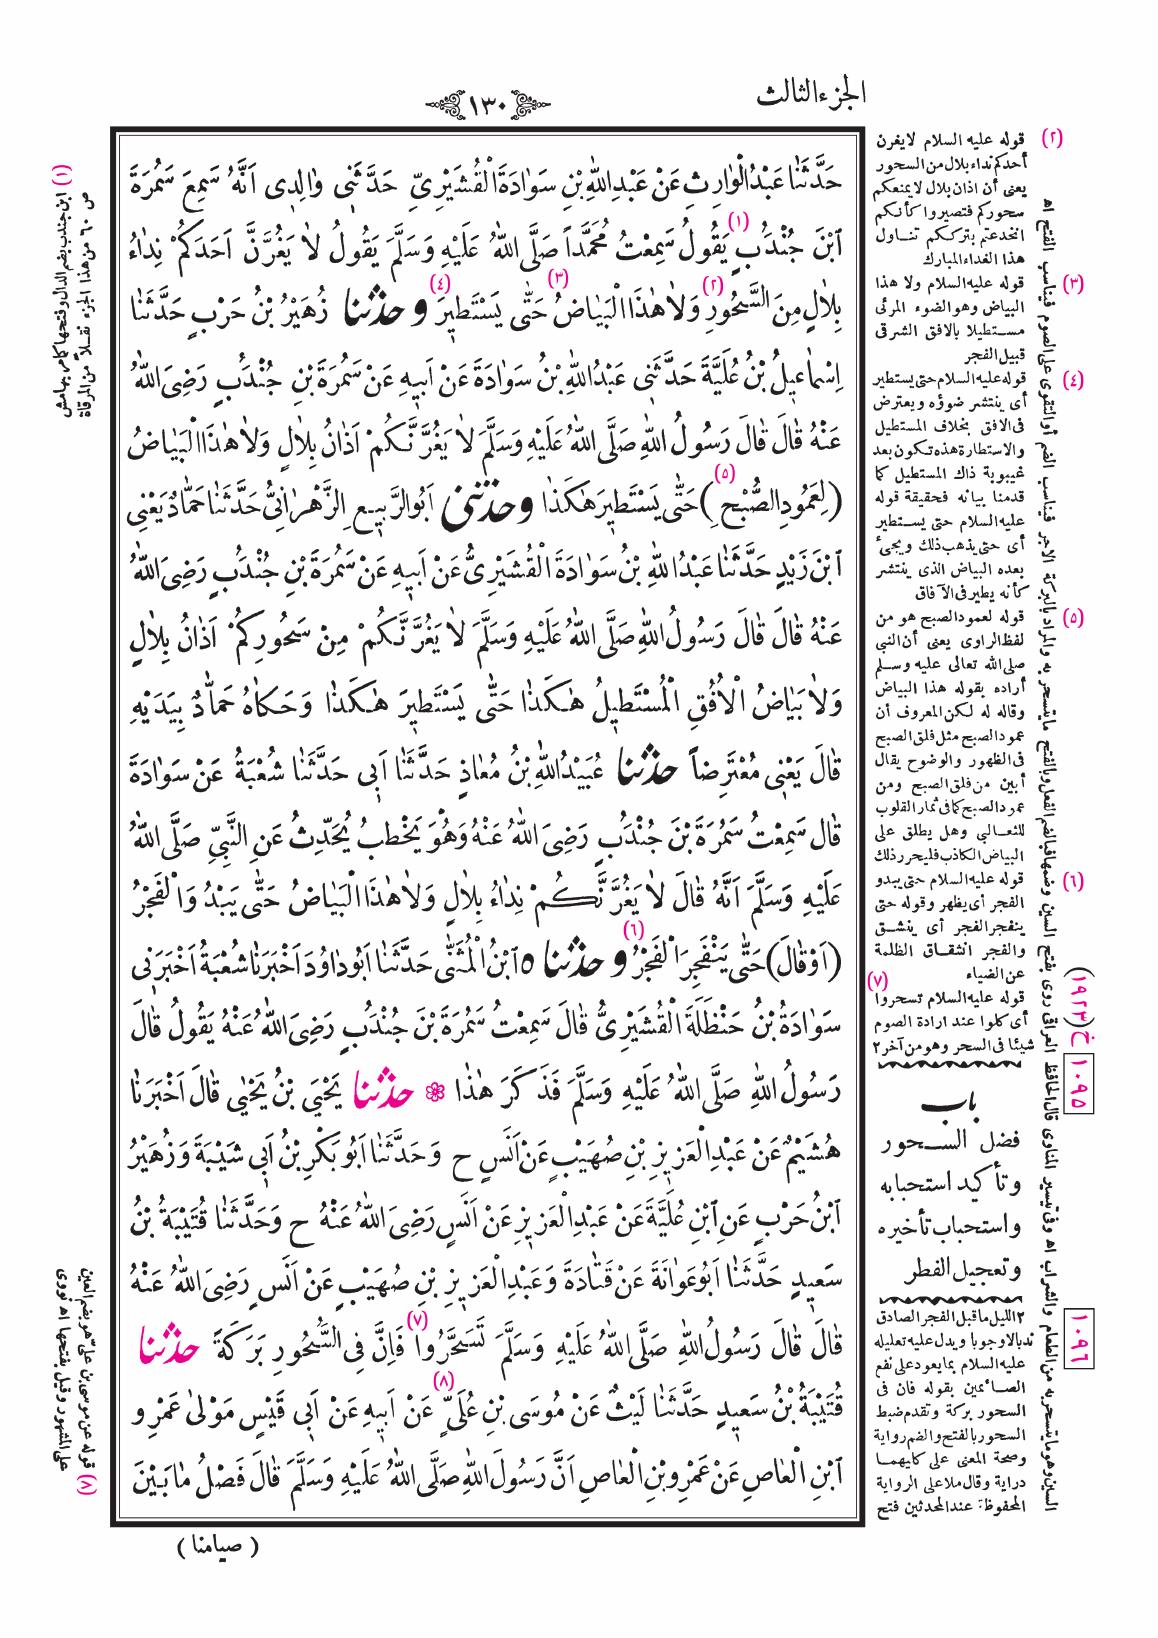 الجزء الثالث
١٣٠
حَدَّثَنَا عَبْدُ الْوَارِثِ عَنْ عَبْدِ اللّٰهِ بْنِ سَوَادَةَ الْقُشَيْرِيِّ حَدَّثَنِي وَالِدِي اَنَّهُ سَمِعَ سَمُرَةَ
ابْنَ جُنْدُبٍ (١) يَقُولُ سَمِعْتُ مُحَمَّداً صَلَّى اللّٰهُ عَلَيْهِ وَسَلَّمَ يَقُولُ لَا يَغُرَّنَّ اَحَدَكُمْ نِدَاءُ
بِلَالٍ مِنَ السَّحُورِ (٢) وَلَا هٰذَا الْبَيَاضُ (٣) حَتَّى يَسْتَطِيرَ (٤) وحدثنا زُهَيْرُ بْنُ حَرْبٍ حَدَّثَنَا
اِسْمَاعِيلُ بْنُ عُلَيَّةَ حَدَّثَنِي عَبْدُ اللّٰهِ بْنُ سَوَادَةَ عَنْ اَبِيهِ عَنْ سَمُرَةَ بْنِ جُنْدُبٍ رَضِيَ اللّٰهُ
عَنْهُ قَالَ قَالَ رَسُولُ اللّٰهِ صَلَّى اللّٰهُ عَلَيْهِ وَسَلَّمَ لَا يَغُرَّنَّكُمْ اَذَانُ بِلَالٍ وَلَا هٰذَا الْبَيَاضُ
(لِعَمُودِ الصُّبْحِ (٥)) حَتَّى يَسْتَطِيرَ هٰكَذَا وحدثنى اَبُو الرَّبِيعِ الزَّهْرَانِيُّ حَدَّثَنَا حَمَّادٌ يَعْنِي
ابْنَ زَيْدٍ حَدَّثَنَا عَبْدُ اللّٰهِ بْنُ سَوَادَةَ الْقُشَيْرِيُّ عَنْ اَبِيهِ عَنْ سَمُرَةَ بْنِ جُنْدُبٍ رَضِيَ اللّٰهُ
عَنْهُ قَالَ قَالَ رَسُولُ اللّٰهِ صَلَّى اللّٰهُ عَلَيْهِ وَسَلَّمَ لَا يَغُرَّنَّكُمْ مِنْ سَحُورِكُمْ اَذَانُ بِلَالٍ
وَلَا بَيَاضُ الْاُفُقِ الْمُسْتَطِيلُ هٰكَذَا حَتَّى يَسْتَطِيرَ هٰكَذَا وَحَكَاهُ حَمَّادٌ بِيَدَيْهِ
قَالَ يَعْنِي مُعْتَرِضاً حدثنا عُبَيْدُ اللّٰهِ بْنُ مُعَاذٍ حَدَّثَنَا اَبِي حَدَّثَنَا شُعْبَةُ عَنْ سَوَادَةَ
قَالَ سَمِعْتُ سَمُرَةَ بْنَ جُنْدُبٍ رَضِيَ اللّٰهُ عَنْهُ وَهُوَ يَخْطُبُ يُحَدِّثُ عَنِ النَّبِيِّ صَلَّى اللّٰهُ
عَلَيْهِ وَسَلَّمَ اَنَّهُ قَالَ لَا يَغُرَّنَّكُمْ نِدَاءُ بِلَالٍ وَلَا هٰذَا الْبَيَاضُ حَتَّى يَبْدُوَ الْفَجْرُ
(اَوْ قَالَ) حَتَّى يَنْفَجِرَ الْفَجْرُ (٦) وحدثنا ٥ ابْنُ الْمُثَنَّى حَدَّثَنَا اَبُو دَاوُدَ اَخْبَرَنَا شُعْبَةُ اَخْبَرَنِي
سَوَادَةُ بْنُ حَنْظَلَةَ الْقُشَيْرِيُّ قَالَ سَمِعْتُ سَمُرَةَ بْنَ جُنْدُبٍ رَضِيَ اللّٰهُ عَنْهُ يَقُولُ قَالَ
رَسُولُ اللّٰهِ صَلَّى اللّٰهُ عَلَيْهِ وَسَلَّمَ فَذَكَرَ هٰذَا ❁ حدثنا يَحْيَى بْنُ يَحْيٰى قَالَ اَخْبَرَنَا
هُشَيْمٌ عَنْ عَبْدِ الْعَزِيزِ بْنِ صُهَيْبٍ عَنْ اَنَسٍ ح وَحَدَّثَنَا اَبُو بَكْرِ بْنُ اَبِي شَيْبَةَ وَزُهَيْرُ
ابْنُ حَرْبٍ عَنِ ابْنِ عُلَيَّةَ عَنْ عَبْدِ الْعَزِيزِ عَنْ اَنَسٍ رَضِيَ اللّٰهُ عَنْهُ ح وَحَدَّثَنَا قُتَيْبَةُ بْنُ
سَعِيدٍ حَدَّثَنَا اَبُو عَوَانَةَ عَنْ قَتَادَةَ وَعَبْدِ الْعَزِيزِ بْنِ صُهَيْبٍ عَنْ اَنَسٍ رَضِيَ اللّٰهُ عَنْهُ
قَالَ قَالَ رَسُولُ اللّٰهِ صَلَّى اللّٰهُ عَلَيْهِ وَسَلَّمَ تَسَحَّرُوا (٧) فَاِنَّ فِي السُّحُورِ بَرَكَةً حدثنا
قُتَيْبَةُ بْنُ سَعِيدٍ حَدَّثَنَا لَيْثٌ عَنْ مُوسَى بْنِ عُلَيٍّ (٨) عَنْ اَبِيهِ عَنْ اَبِي قَيْسٍ مَوْلَى عَمْرِو
ابْنِ الْعَاصِ عَنْ عَمْرِو بْنِ الْعَاصِ اَنَّ رَسُولَ اللّٰهِ صَلَّى اللّٰهُ عَلَيْهِ وَسَلَّمَ قَالَ فَصْلُ مَا بَيْنَ
( صيامنا )
(٢) قوله عليه السلام لا يغرن
أحدكم نداء بلال من السحور
يعنى أن اذان بلال لا يمنعكم
سحوركم فتصيروا كأنكم
انخدعتم بترككم تناول
هذا الغداء المبارك
(٣) قوله عليه السلام ولا هذا
البياض وهو الضوء المرئى
مستطيلا بالافق الشرقى
قبيل الفجر
(٤) قوله عليه السلام حتى يستطير
أى ينتشر ضوؤه ويعترض
فى الافق بخلاف المستطيل
والاستطارة هذه تكون بعد
غيبوبة ذاك المستطيل كما
قدمنا بيانه فحقيقة قوله
عليه السلام حتى يستطير
أى حتى يذهب ذلك ويجىء
بعده البياض الذى ينتشر
كأنه يطير فى الآفاق
(٥) قوله لعمود الصبح هو من
لفظ الراوى يعنى أن النبى
صلى الله تعالى عليه وسلم
أراده بقوله هذا البياض
وقاله له لكن المعروف أن
عمود الصبح مثل فلق الصبح
فى الظهور والوضوح يقال
أبين من فلق الصبح ومن
عمود الصبح كما فى ثمار القلوب
للثعالبى وهل يطلق على
البياض الكاذب فليحرر ذلك
(٦) قوله عليه السلام حتى يبدو
الفجر أى يظهر وقوله حتى
ينفجر الفجر أى ينشق
والفجر انشقاق الظلمة
عن الضياء
(٧) قوله عليه السلام تسحروا
أى كلوا عند ارادة الصوم
شيئا فى السحر وهو من آخر ٢
باب
فضل السحور
وتأكيد استحبابه
واستحباب تأخيره
وتعجيل الفطر
٢ الليل ما قبل الفجر الصادق
ندبا لا وجوبا ويدل عليه تعليله
عليه السلام بما يعود على نفع
الصائمين بقوله فان فى
السحور بركة وتقدم ضبط
السحور بالفتح والضم رواية
وصحة المعنى على كليهما
دراية وقال ملا على الرواية
المحفوظة عند المحدثين فتح
السين وهو ما يتسحر به من الطعام والشراب اه وفى تيسير المناوى قال الحافظ العراقى روى بفتح السين وضمها فبالضم الفعل وبالفتح ما يتسحر به والمراد بالبركة الاجر فيناسب الضم أو التقوى على الصوم فيناسب الفتح اه
١٠٩٥ خ (١٩٢٣)
١٠٩٦
(١) ابن جندب بضم الدال وفتحها كما مر بهامش
ص ٦٠ من هذا الجزء نقلاً من المرقاة
(٨) قوله عن موسى بن علىّ هو بضم العين
على المشهور وقيل بفتحها اه نووى